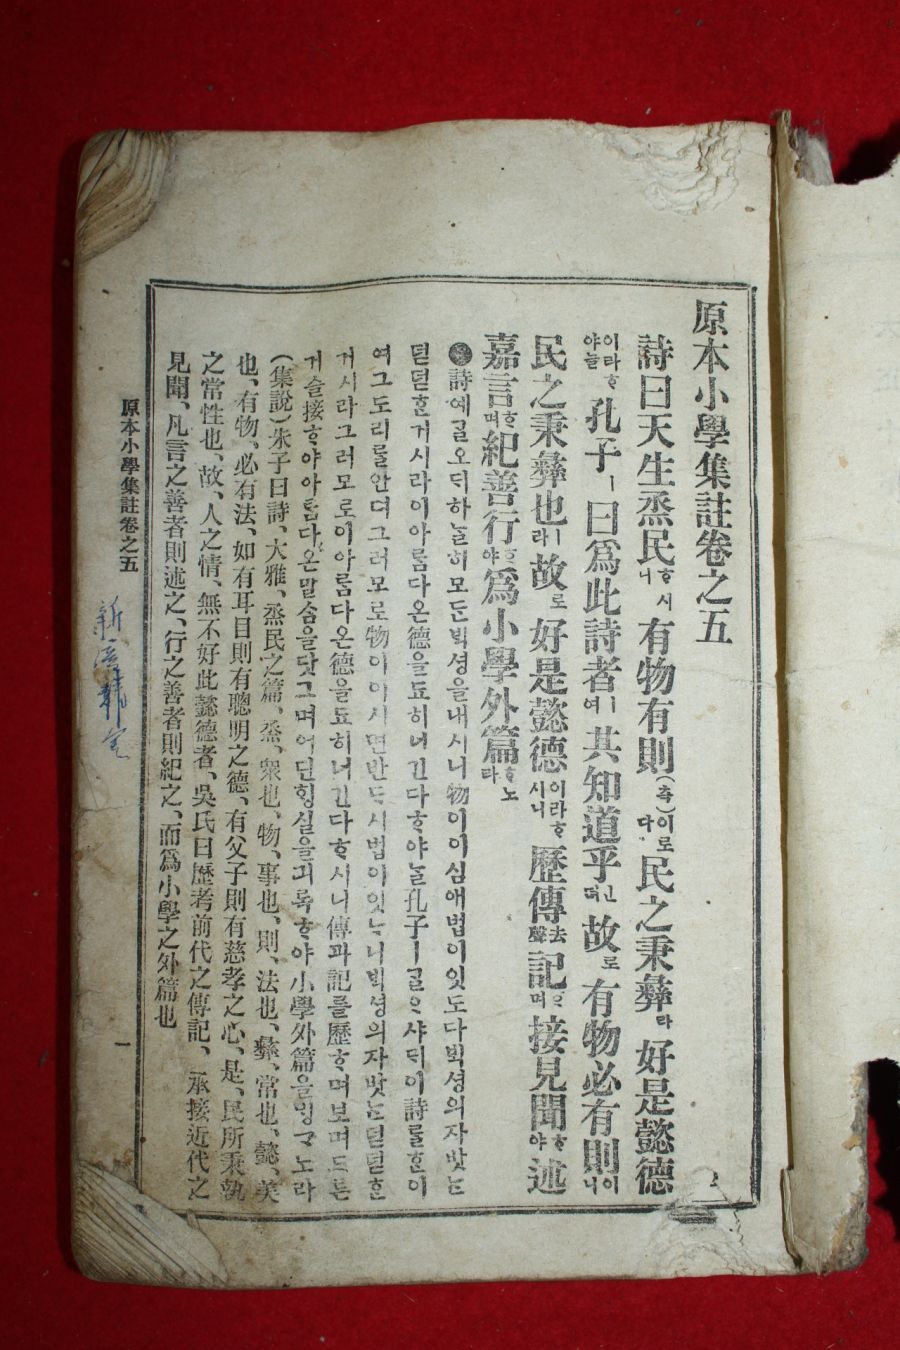 原本小學集註卷之五
詩曰天生烝民ᄒᆞ시니有物有則(측)이로다民之秉彝라好是懿德
이라ᄒᆞ야ᄂᆞᆯ孔子ㅣ曰爲此詩者ㅣ여其知道乎ᅟᅵᆫ뎌故로有物必有則이니
民之秉彝也ㅣ라故로好是懿德이라ᄒᆞ시니歷傳去聲記ᄒᆞ며接見聞ᄒᆞ야述
嘉言ᄒᆞ며紀善行ᄒᆞ야爲小學外篇ᄒᆞ노라
詩예ᄀᆞᆯ오ᄃᆡ하ᄂᆞᆯ히모ᄃᆞᆫᄇᆡᆨ셩을내시니物이이심애법이잇도다ᄇᆡᆨ셩의자밧ᄂᆞᆫ
덛덛ᄒᆞᆫ거시라이아ᄅᆞᆷ다온德을됴히너긴다ᄒᆞ야ᄂᆞᆯ孔子ㅣᄀᆞᆯᄋᆞ샤ᄃᆡ이詩ᄅᆞᆯᄒᆞᆫ이
여그도리ᄅᆞᆯ안뎌그러모로物이이시면반ᄃᆞ시법이잇ᄂᆞ니ᄇᆡᆨ셩의자밧ᄂᆞᆫ덛덛ᄒᆞᆫ
거시라그러모로이아ᄅᆞᆷ다온德을됴히너긴다ᄒᆞ시니傳과記ᄅᆞᆯ歷ᄒᆞ며보며드른
거슬接ᄒᆞ야아ᄅᆞᆷ다온말ᄉᆞᆷ을닷그며어딘ᄒᆡᆼ실을긔록ᄒᆞ야小學外篇을ᄆᆡᆼᄀᆞ노라
(集說)朱子曰詩、大雅、烝民之篇、烝、衆也、物、事也、則、法也、彝、常也、懿、美
也、有物、必有法、如有耳目則有聰明之德、有父子則有慈孝之心、是、民所秉執
之常性也、故、人之情、無不好此懿德者、吳氏曰歷考前代之傳記、承接近代之
見聞、凡言之善者則述之、行之善者則紀之、而爲小學之外篇也
原本小學集註卷之五
一